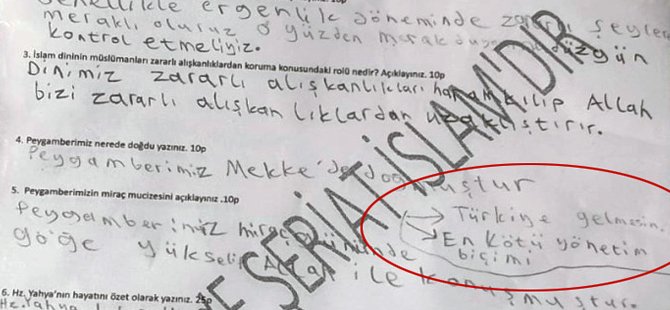 genellikle ergenlik döneminde zararlı şeylere
meraklı oluruz o yüzden merak düzgün
kontrol etmeliyiz.
3. İslam dininin müslümanları zararlı alışkanlıklardan koruma konusundaki rolü nedir? Açıklayınız. 10p
Dinimiz zararlı alışkanlıkları haram kılıp Allah
bizi zararlı alışkanlıklardan uzaklıştırır.
4. Peygamberimiz nerede doğdu yazınız. 10p
Peygamberimiz Mekke'de doğmuştur
5. Peygamberimizin miraç mucizesini açıklayınız .10p
Peygamberimiz
göğe yükselip Allah ile konuşmuştur.
→ Türkiye gelmesin.
→ En kötü yönetim
biçimi
6. Hz. Yahya'nın hayatını özet olarak yazınız. 25p
Hz. Yahya
VE ŞERİAT İSLAM'DIR